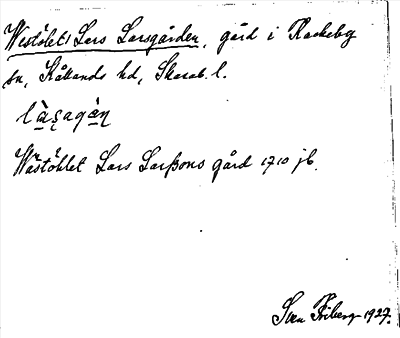 Westölets Lars Larsgården, gård i Rackeby
sn, Kållands hd, Skarab. l.
là̱ʂagàn̥
Wästöhlet Lars Larßons gård 1710 jb.
Sven Friberg 1927.